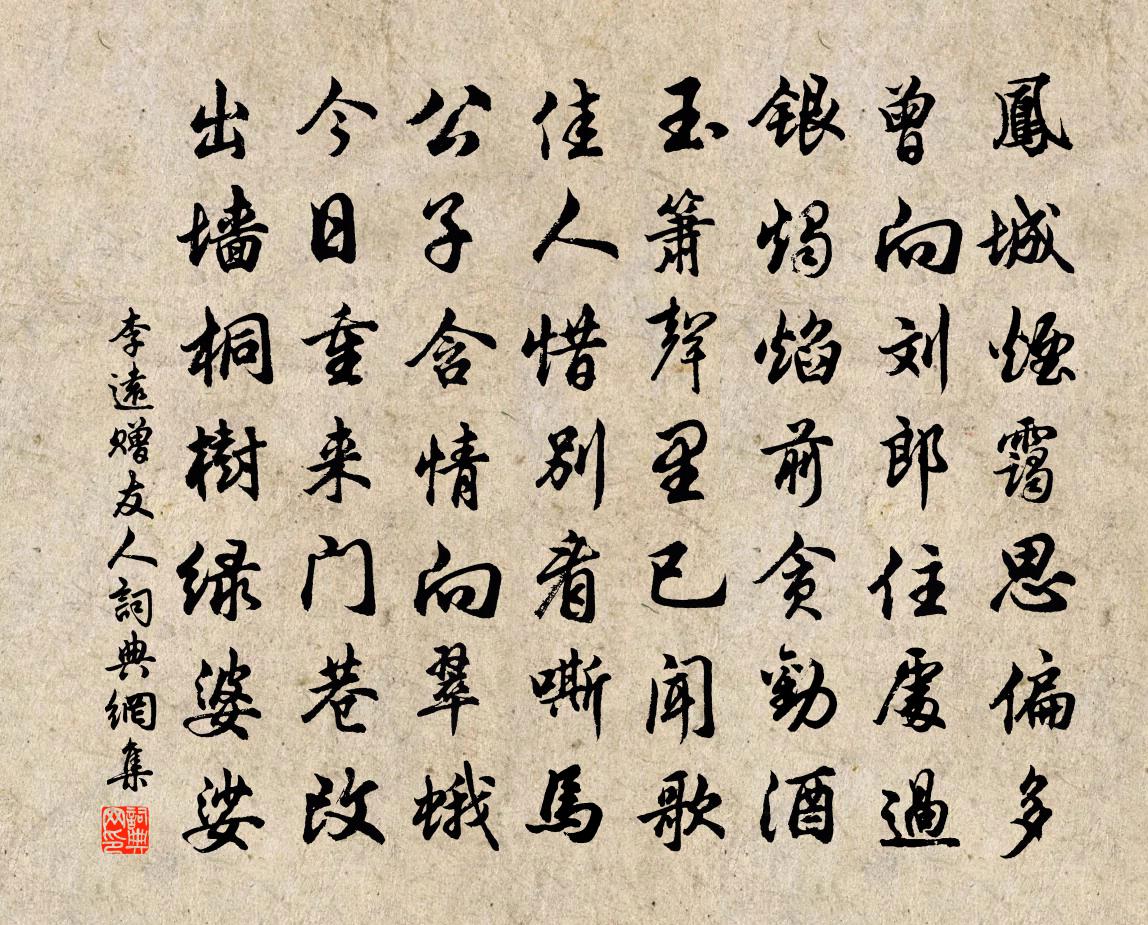 鳳城煙靄思偏多
曾向刘郎住處過
银燭焰前贪勸酒
玉簫聲里已闻歌
佳人惜别看嘶馬
公子含情向翠蛾
今日重来门巷改
出墙桐樹绿婆娑
李遠赠友人詞典網集
詞典网印